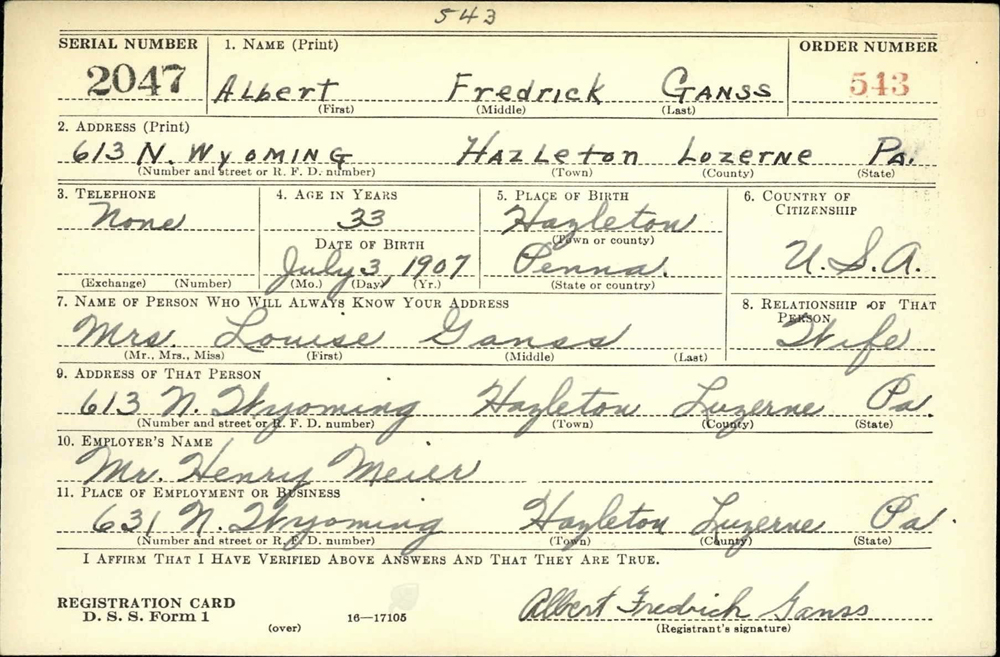 543
SERIAL NUMBER 1. NAME (Print) ORDER NUMBER
2047 Albert Fredrick Ganss 543
(First) (Middle) (Last)
2. ADDRESS (Print)
613 N. Wyoming Hazleton Lozerne Pa.
(Number and street or R. F. D. number) (Town) (County) (State)
3. TELEPHONE 4. AGE IN YEARS 5. PLACE OF BIRTH 6. COUNTRY OF CITIZENSHIP
None 33 Hazleton
DATE OF BIRTH (Town or county)
July 3, 1907 Penna. U.S.A.
(Exchange) (Number) (Mo.) (Day) (Yr.) (State or country)
7. NAME OF PERSON WHO WILL ALWAYS KNOW YOUR ADDRESS 8. RELATIONSHIP OF THAT PERSON
Mrs. Louise Ganss Wife
(Mr., Mrs., Miss) (First) (Middle) (Last)
9. ADDRESS OF THAT PERSON
613 N. Wyoming Hazleton Luzerne Pa.
(Number and street or R. F. D. number) (Town) (County) (State)
10. EMPLOYER'S NAME
Mr. Henry Meier
11. PLACE OF EMPLOYMENT OR BUSINESS
631 N. Wyoming Hazleton Luzerne Pa.
(Number and street or R. F. D. number) (Town) (County) (State)
I AFFIRM THAT I HAVE VERIFIED ABOVE ANSWERS AND THAT THEY ARE TRUE.
REGISTRATION CARD Albert Fredrich Ganss
D. S. S. Form 1 (over) 16—17105 (Registrant's signature)